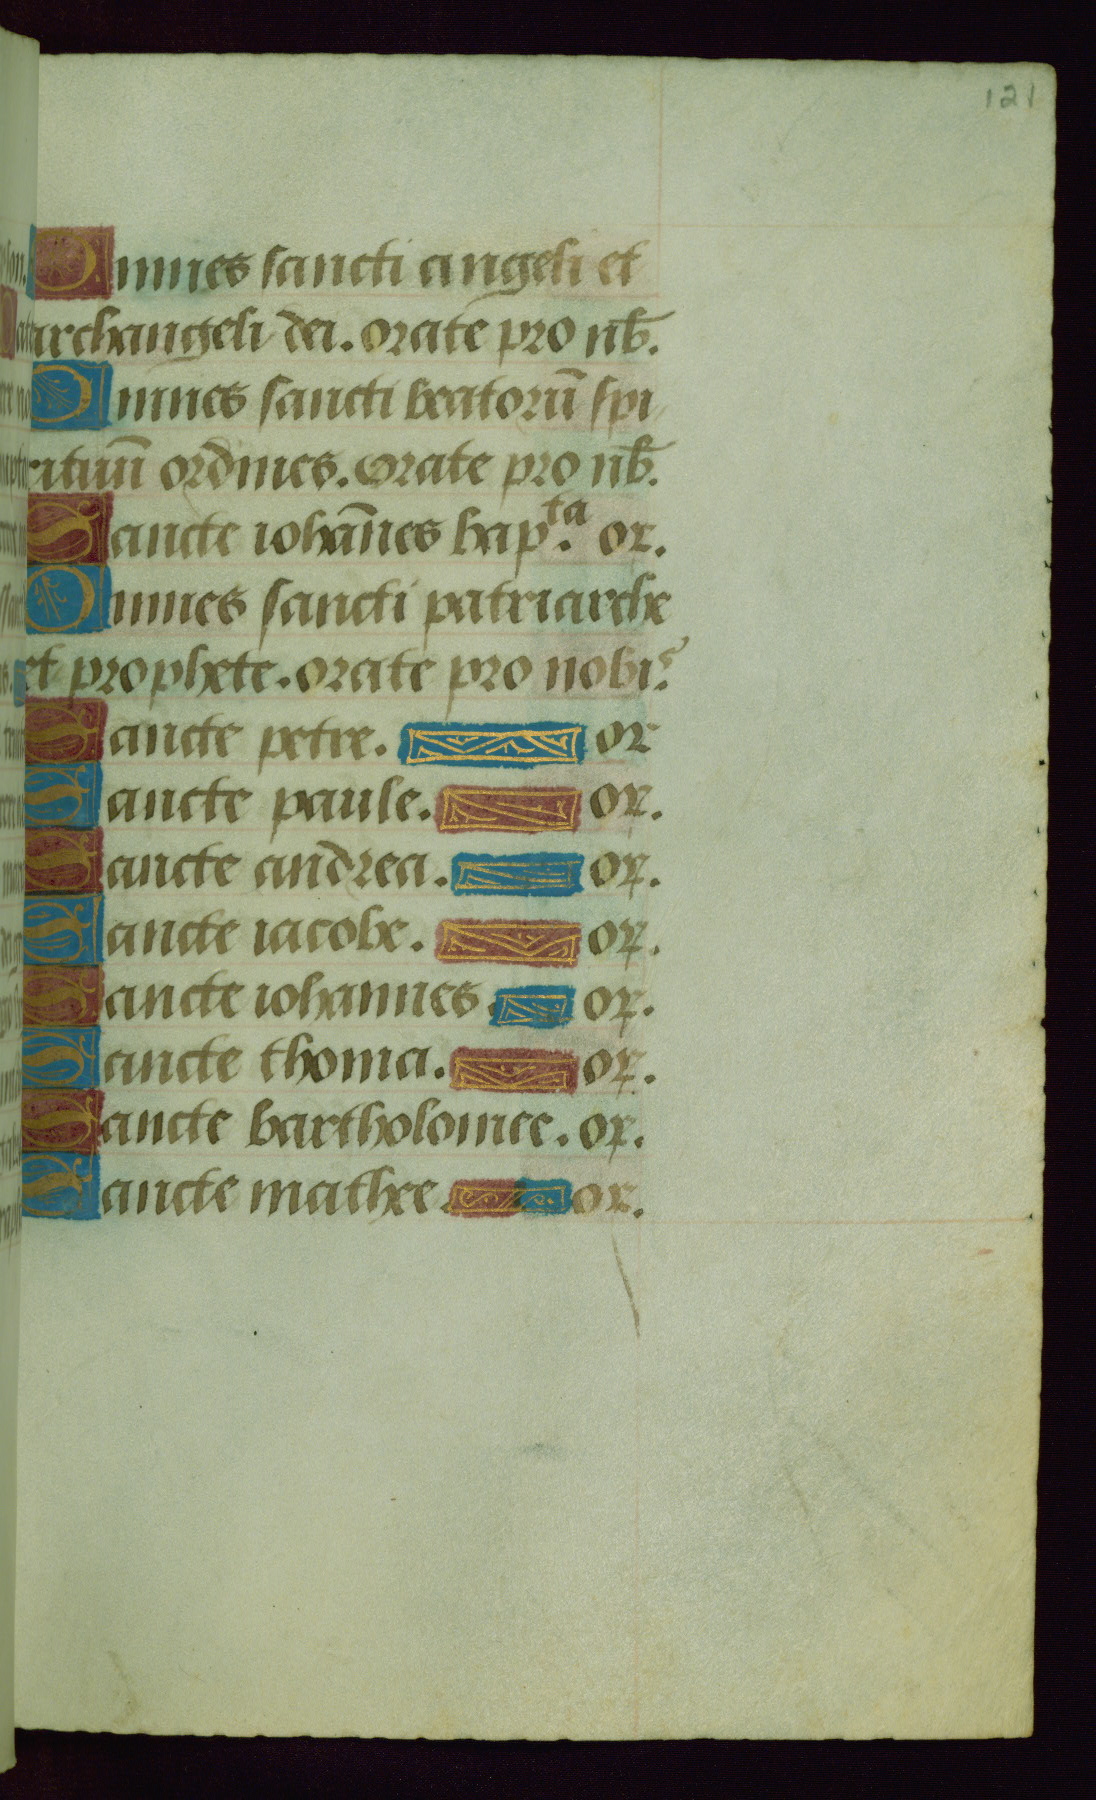 121
Omnes sancti angeli et
archangeli dei. orate pro nb̄.
Omnes sancti beatorū spi
rituū ordines. Orate pro nb̄.
Sancte iohānes bap.ta or.
Omnes sancti patriarche
et prophete. orate pro nobis
Sancte petre. or
Sancte paule. or.
Sancte andrea. or.
Sancte iacobe. or.
Sancte iohannes. or.
Sancte thoma. or.
Sancte bartholomee. or.
Sancte mathee or.